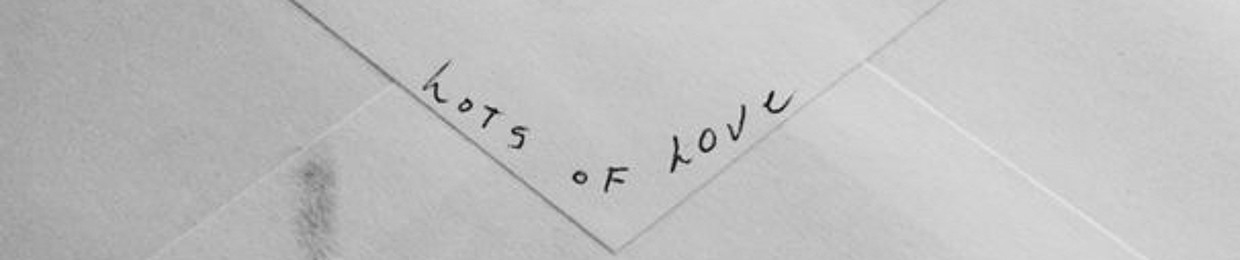 LOTS OF LOVE